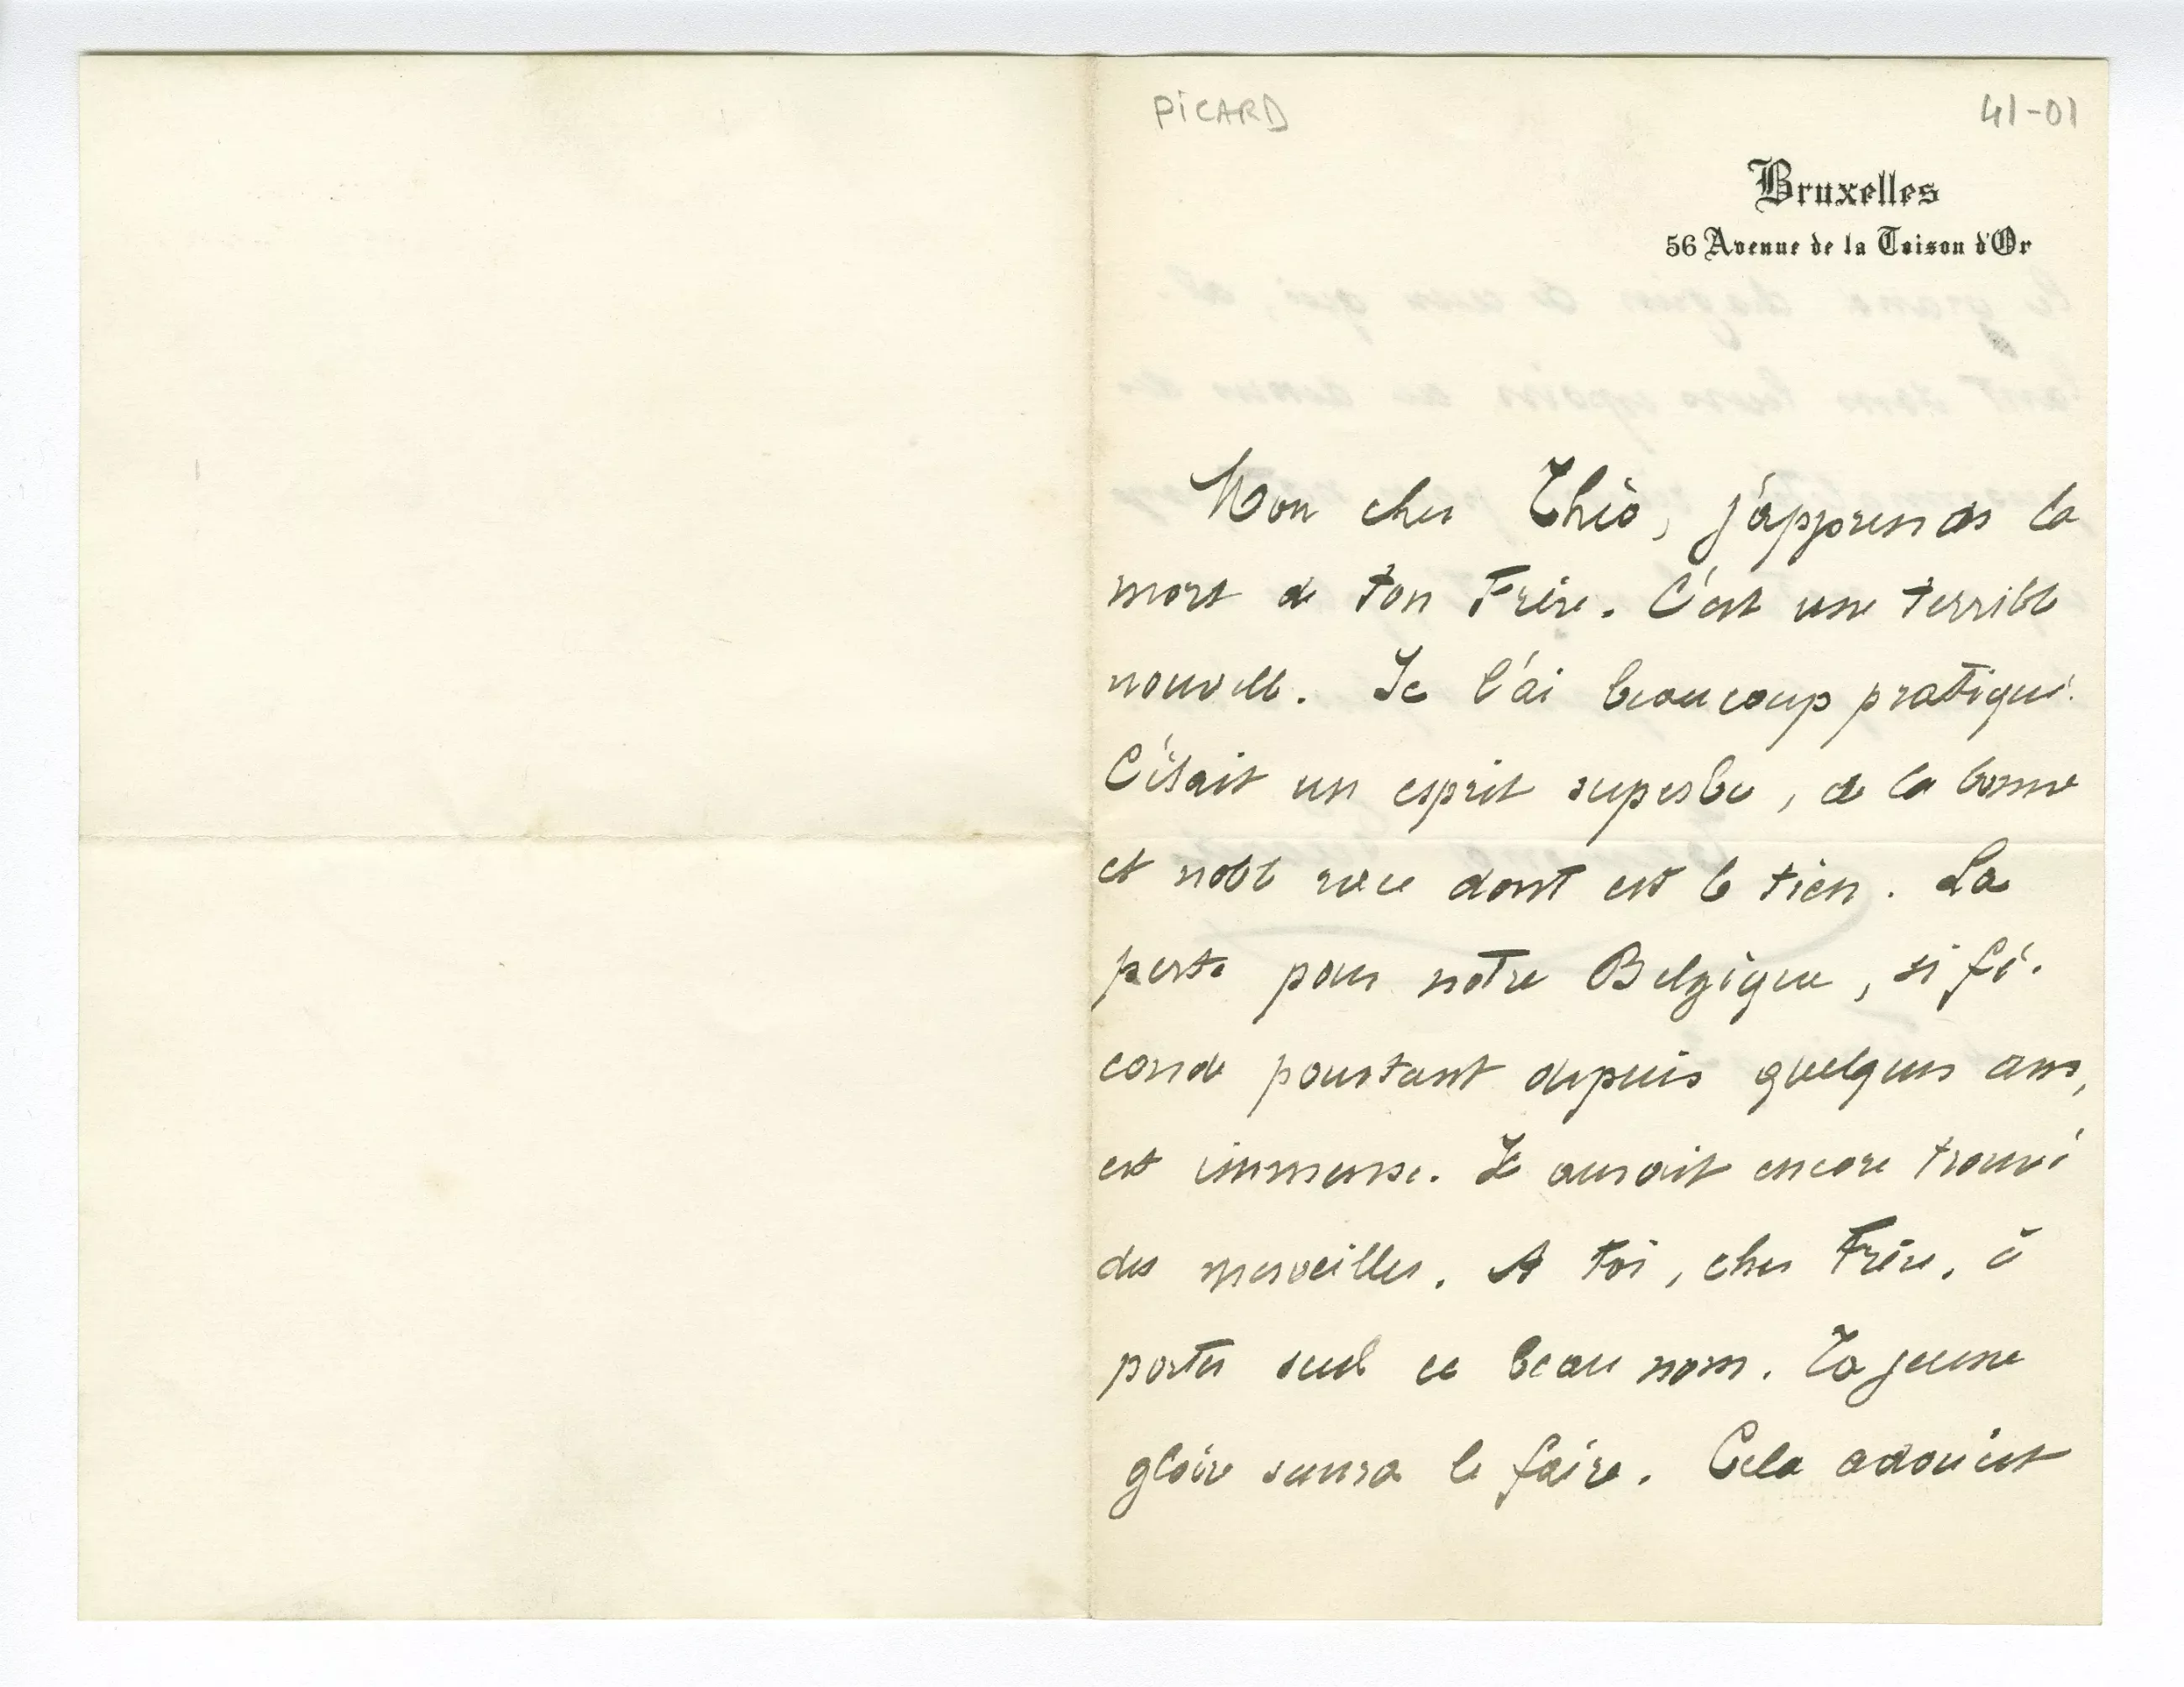 PiCARD
41-01
Bruxelles
56 Avenue de la Toison d'Or
Mon cher Théo, j'apprends la
mort de ton Frère. C'est une terrible
nouvelle. Je l'ai beaucoup pratiqué.
C'était un esprit superbe, de la bonne
et noble race dont est le tien. La
perte pour notre Belgique, si fé-
conde pourtant depuis quelques ans,
est immense. Il aurait encore trouvé
des merveilles. A toi, cher Frère, à
porter seul ce beau nom. Ta jeune
gloire saura le faire. Cela adoucit